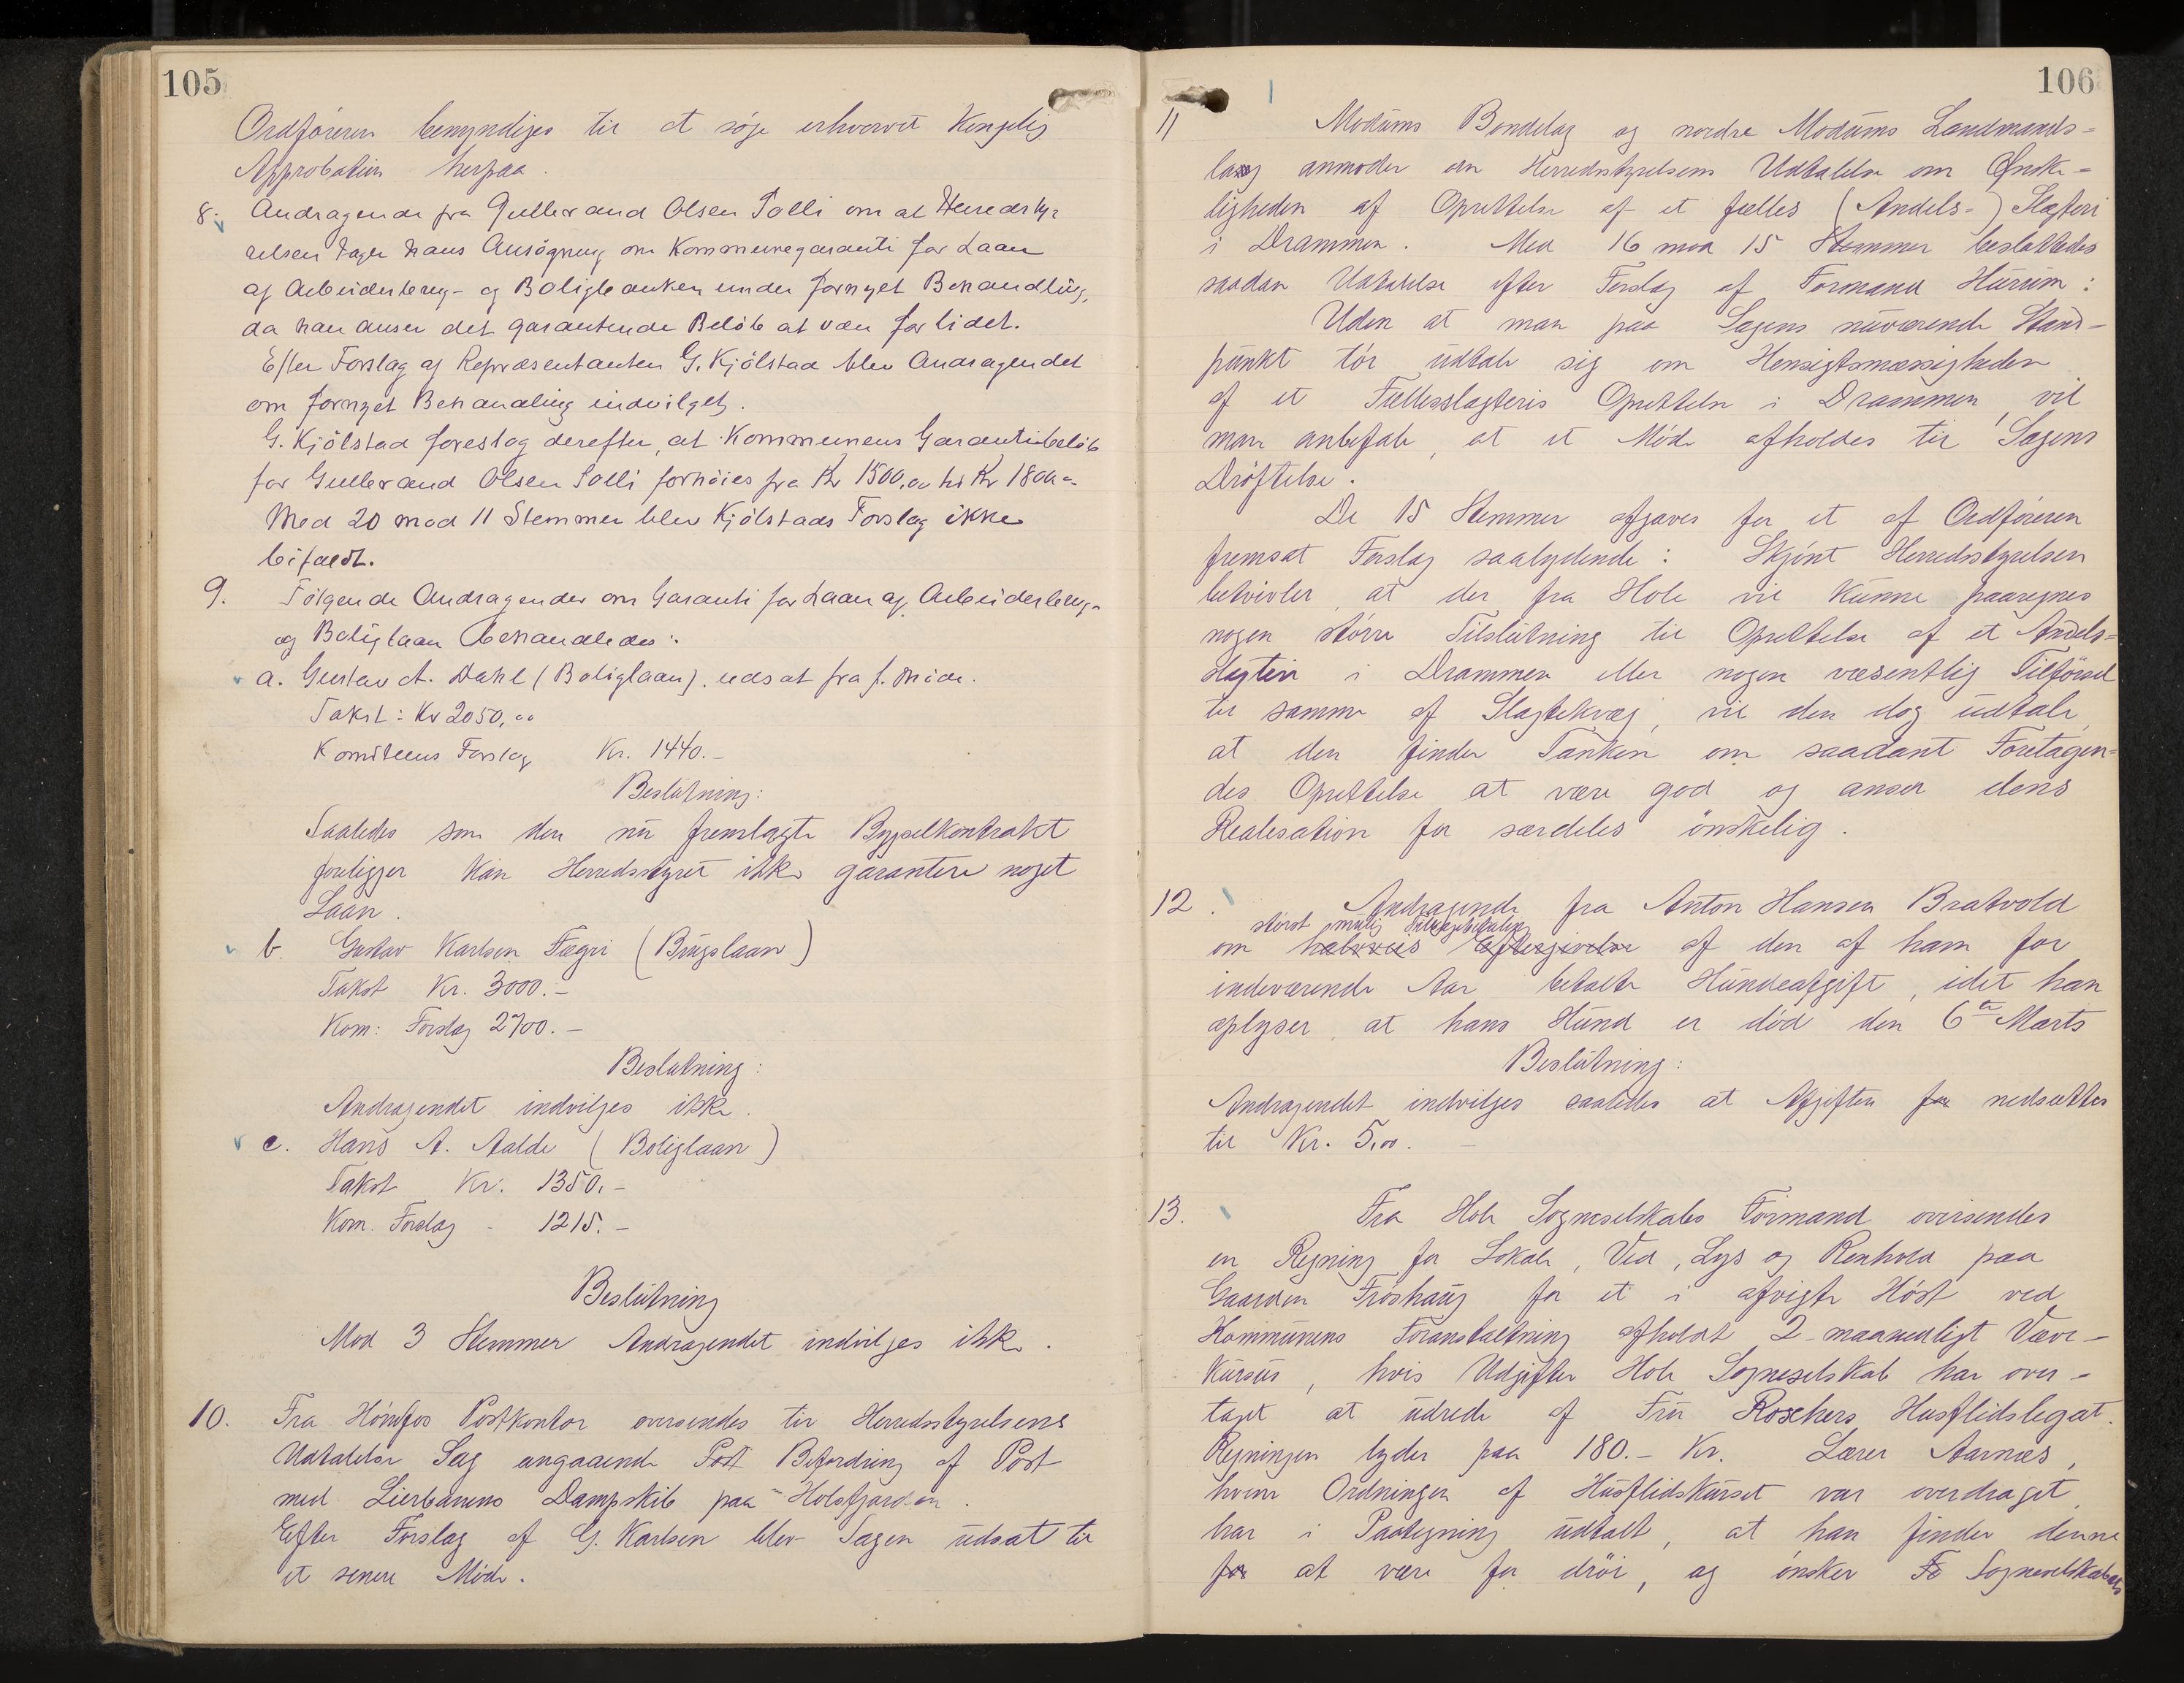 105
Ordføreren bemyndiges til at søge erhvervet Kongelig
Approbation herpaa.
8. Andragende fra Gulbrand Olsen Solli om at Herredsty=
relsen tager hans Ansøgning om Kommunegaranti for Laan
af Arbeiderbrug- og Boligbanken under fornyet Behandling,
da han anser det garanterede Beløb at være for lidet.
Efter Forslag af Repræsentanten G. Kjølstad blev Andragendet
om fornyet Behandling indvilget.
G. Kjølstad foreslog derefter, at Kommunens Garantibeløb
for Gulbrand Olsen Solli forhøies fra Kr 1500,00 til Kr 1800,-
Med 20 mod 11 Stemmer blev Kjølstads Forslag ikke
bifaldt.
9. Følgende Andragender om Garanti for Laan af Arbeiderbrug-
og Boliglaan behandledes:
a. Gustav A. Dahl (Boliglaan). udsat fra f. Møde.
Takst: Kr 2050,00
Komiteens Forslag Kr. 1440.-
Beslutning:
Saaledes som den nu fremlagte Bygselkontrakt
foreligger kan Herredsstyret ikke garantere noget
Laan.
b. Gustav Karlsen Fægri (Brugslaan)
Takst Kr. 3000.-
Kom: Forslag 2700.-
Beslutning:
Andragendet indvilges ikke.
c. Hans A. Aalde (Boliglaan)
Takst Kr. 1350.-
Kom. Forslag - 1215.-
Beslutning
Mod 3 Stemmer Andragendet indvilges ikke.
10. Fra Hønefos Postkontor oversendes til Herredsstyrelsens
Udtalelse Sag angaaende Post Befordring af Post
med Lierbanens Dampskib paa Holsfjorden.
Efter Forslag af G. Karlsen blev Sagen udsat til
et senere Møde.
106
11 Modums Bondelag og nordre Modums Landmands=
lag anmoder om Herredsstyrelsens Udtalelse om Ønske=
ligheden af Oprettelse af et fælles (Andels=) Slagteri
i Drammen. Med 16 mod 15 Stemmer besluttedes
saadan Udtalelse efter Forslag af Formand Hurum:
Uden at man paa Sagens nuværende Stand-
punkt tør udtale sig om Hensigtsmæssigheden
af et Fællesslagteris Oprettelse i Drammen, vil
man anbefale, at et Møde afholdes til Sagens
Drøftelse.
De 15 Stemmer afgaves for et af Ordføreren
fremsat Forslag saalydende: Skjønt Herredsstyrelsen
betvivler, at der fra Hole vil kunne paaregnes
nogen større Tilslutning til Oprettelse af et Andels=
slagteri i Drammen eller nogen væsentlig Tilførsel
til samme af Slagtekvæg, vil den dog udtale,
at den finder Tanken om saadant Foretagen=
des Oprettelse at være god og anser dens
Realisation for særdeles ønskelig.
12. Andragende fra Anton Hansen Bratvold
størst mulig Tilbagebetaling
om halvveis Eftergivelse af den af ham for
indeværende Aar betalte Hundeafgift, idet han
oplyser, at hans Hund er død den 6te Marts
Beslutning:
Andragendet indvilges saaledes at Afgiften for nedsættes
til Kr. 5,00. -
13. Fra Hole Sogneselskabs Formand oversendes
en Regning for Lokale, Ved, Lys og Renhold paa
Gaarden Frøshaug for et i afvigte Høst ved
Kommunens Foranstaltning afholdt 2-maanedligt Væve-
kursus, hvis Udgifter Hole Sogneselskab har over-
taget at udrede af Fru Roschers Husflidslegat.
Regningen lyder paa 180.- Kr. Lærer Aarnæs,
hvem Ordningen af Husflidskurset var overdraget,
har i Paategning udtalt, at han finder denne
for at være for drøi, og ønsker Fo Sogneselskabets